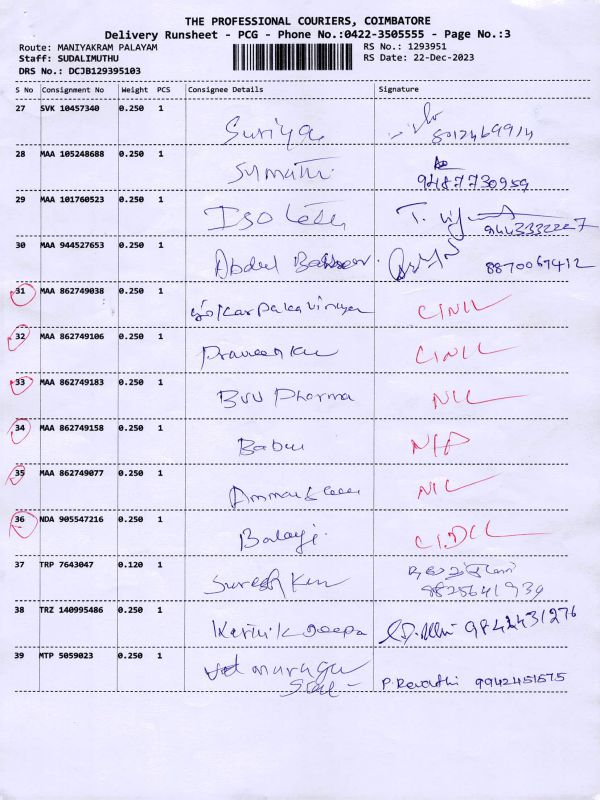 THE PROFESSIONAL COURIERS, COIMBATORE
Delivery Runsheet - PCG - Phone No.:0422-3505555 - Page No.:3
Route: MANIYAKRAM PALAYAM RS No.: 1293951
Staff: SUDALIMUTHU RS Date: 22-Dec-2023
DRS No.: DCJB129395103
S No Consignment No Weight PCS Consignee Details Signature
27 SVK 10457340 0.250 1 Suriya
28 MAA 105248688 0.250 1 Sumathi 9487730959
29 MAA 101760523 0.250 1 9443332227
30 MAA 944527653 0.250 1 Abdul 8870067412
31 MAA 862749038 0.250 1
32 MAA 862749106 0.250 1 Praveen Ku
33 MAA 862749183 0.250 1 BVV Pharma NIL
34 MAA 862749158 0.250 1 Babu
35 MAA 862749077 0.250 1 NIL
36 NDA 905547216 0.250 1 Balaji
37 TRP 7643047 0.120 1 Suresh Kum
38 TRZ 140995486 0.250 1 Karthik deepa 9842431276
39 MTP 5059023 0.250 1 murugu P. Revathi 9942451575